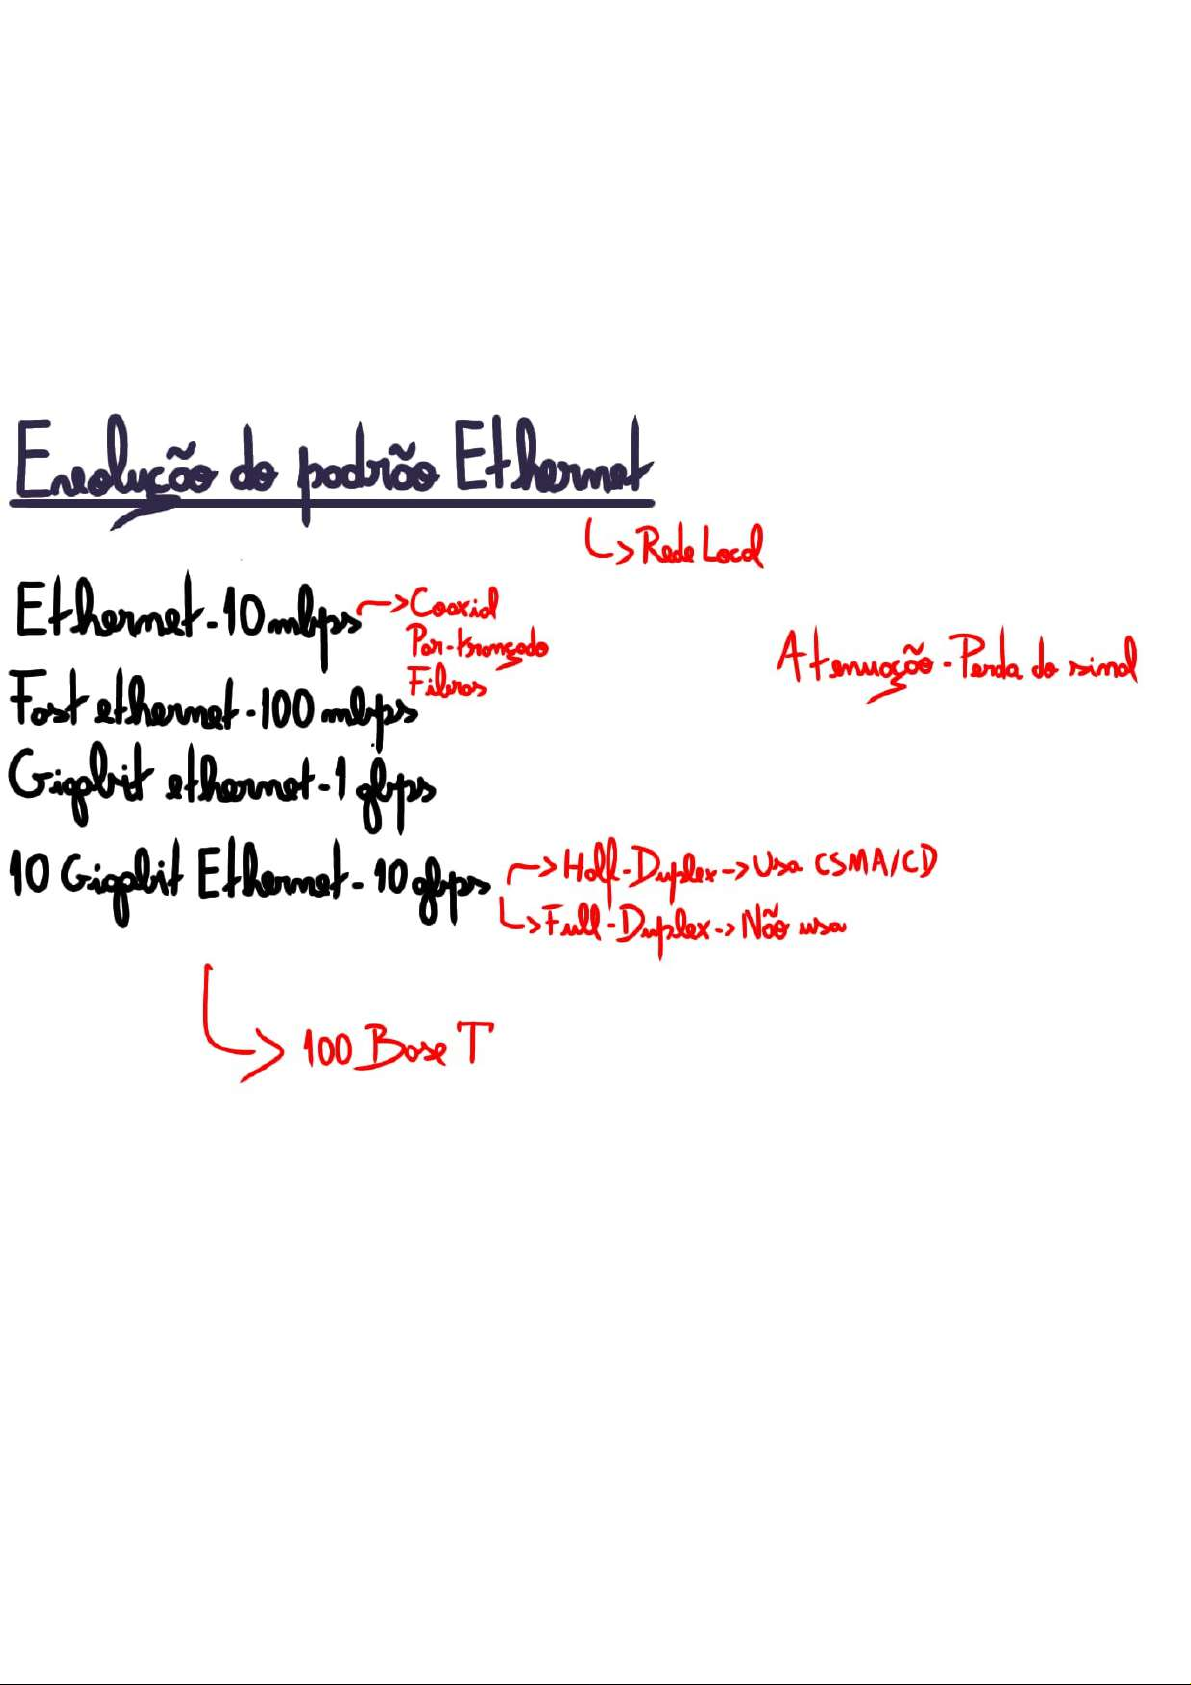 Evolução do padrão Ethernet
↳ Rede Local
Ethernet - 10 mbps → Coaxial
Par-trançado
Fibras
Atenuação - Perda do sinal
Fast ethernet - 100 mbps
Gigabit ethernet - 1 gbps
10 Gigabit Ethernet - 10 gbps → Half-Duplex -> Usa CSMA/CD
↳ Full-Duplex -> Não usa
↳ 100 Base T